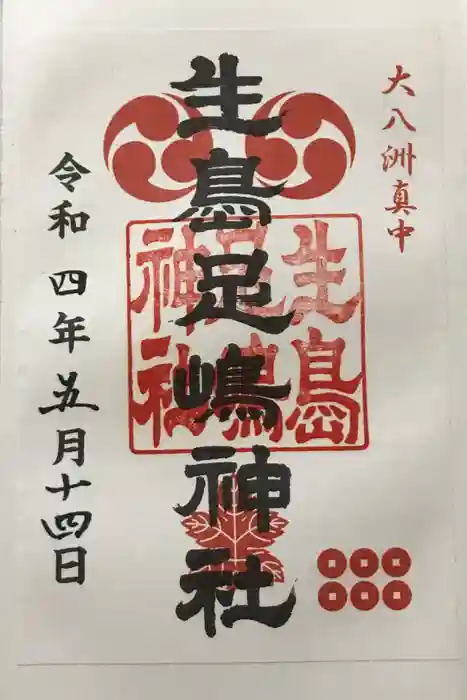 大八洲真中
生島足嶋神社
生島足嶋神社
令和四年五月十四日